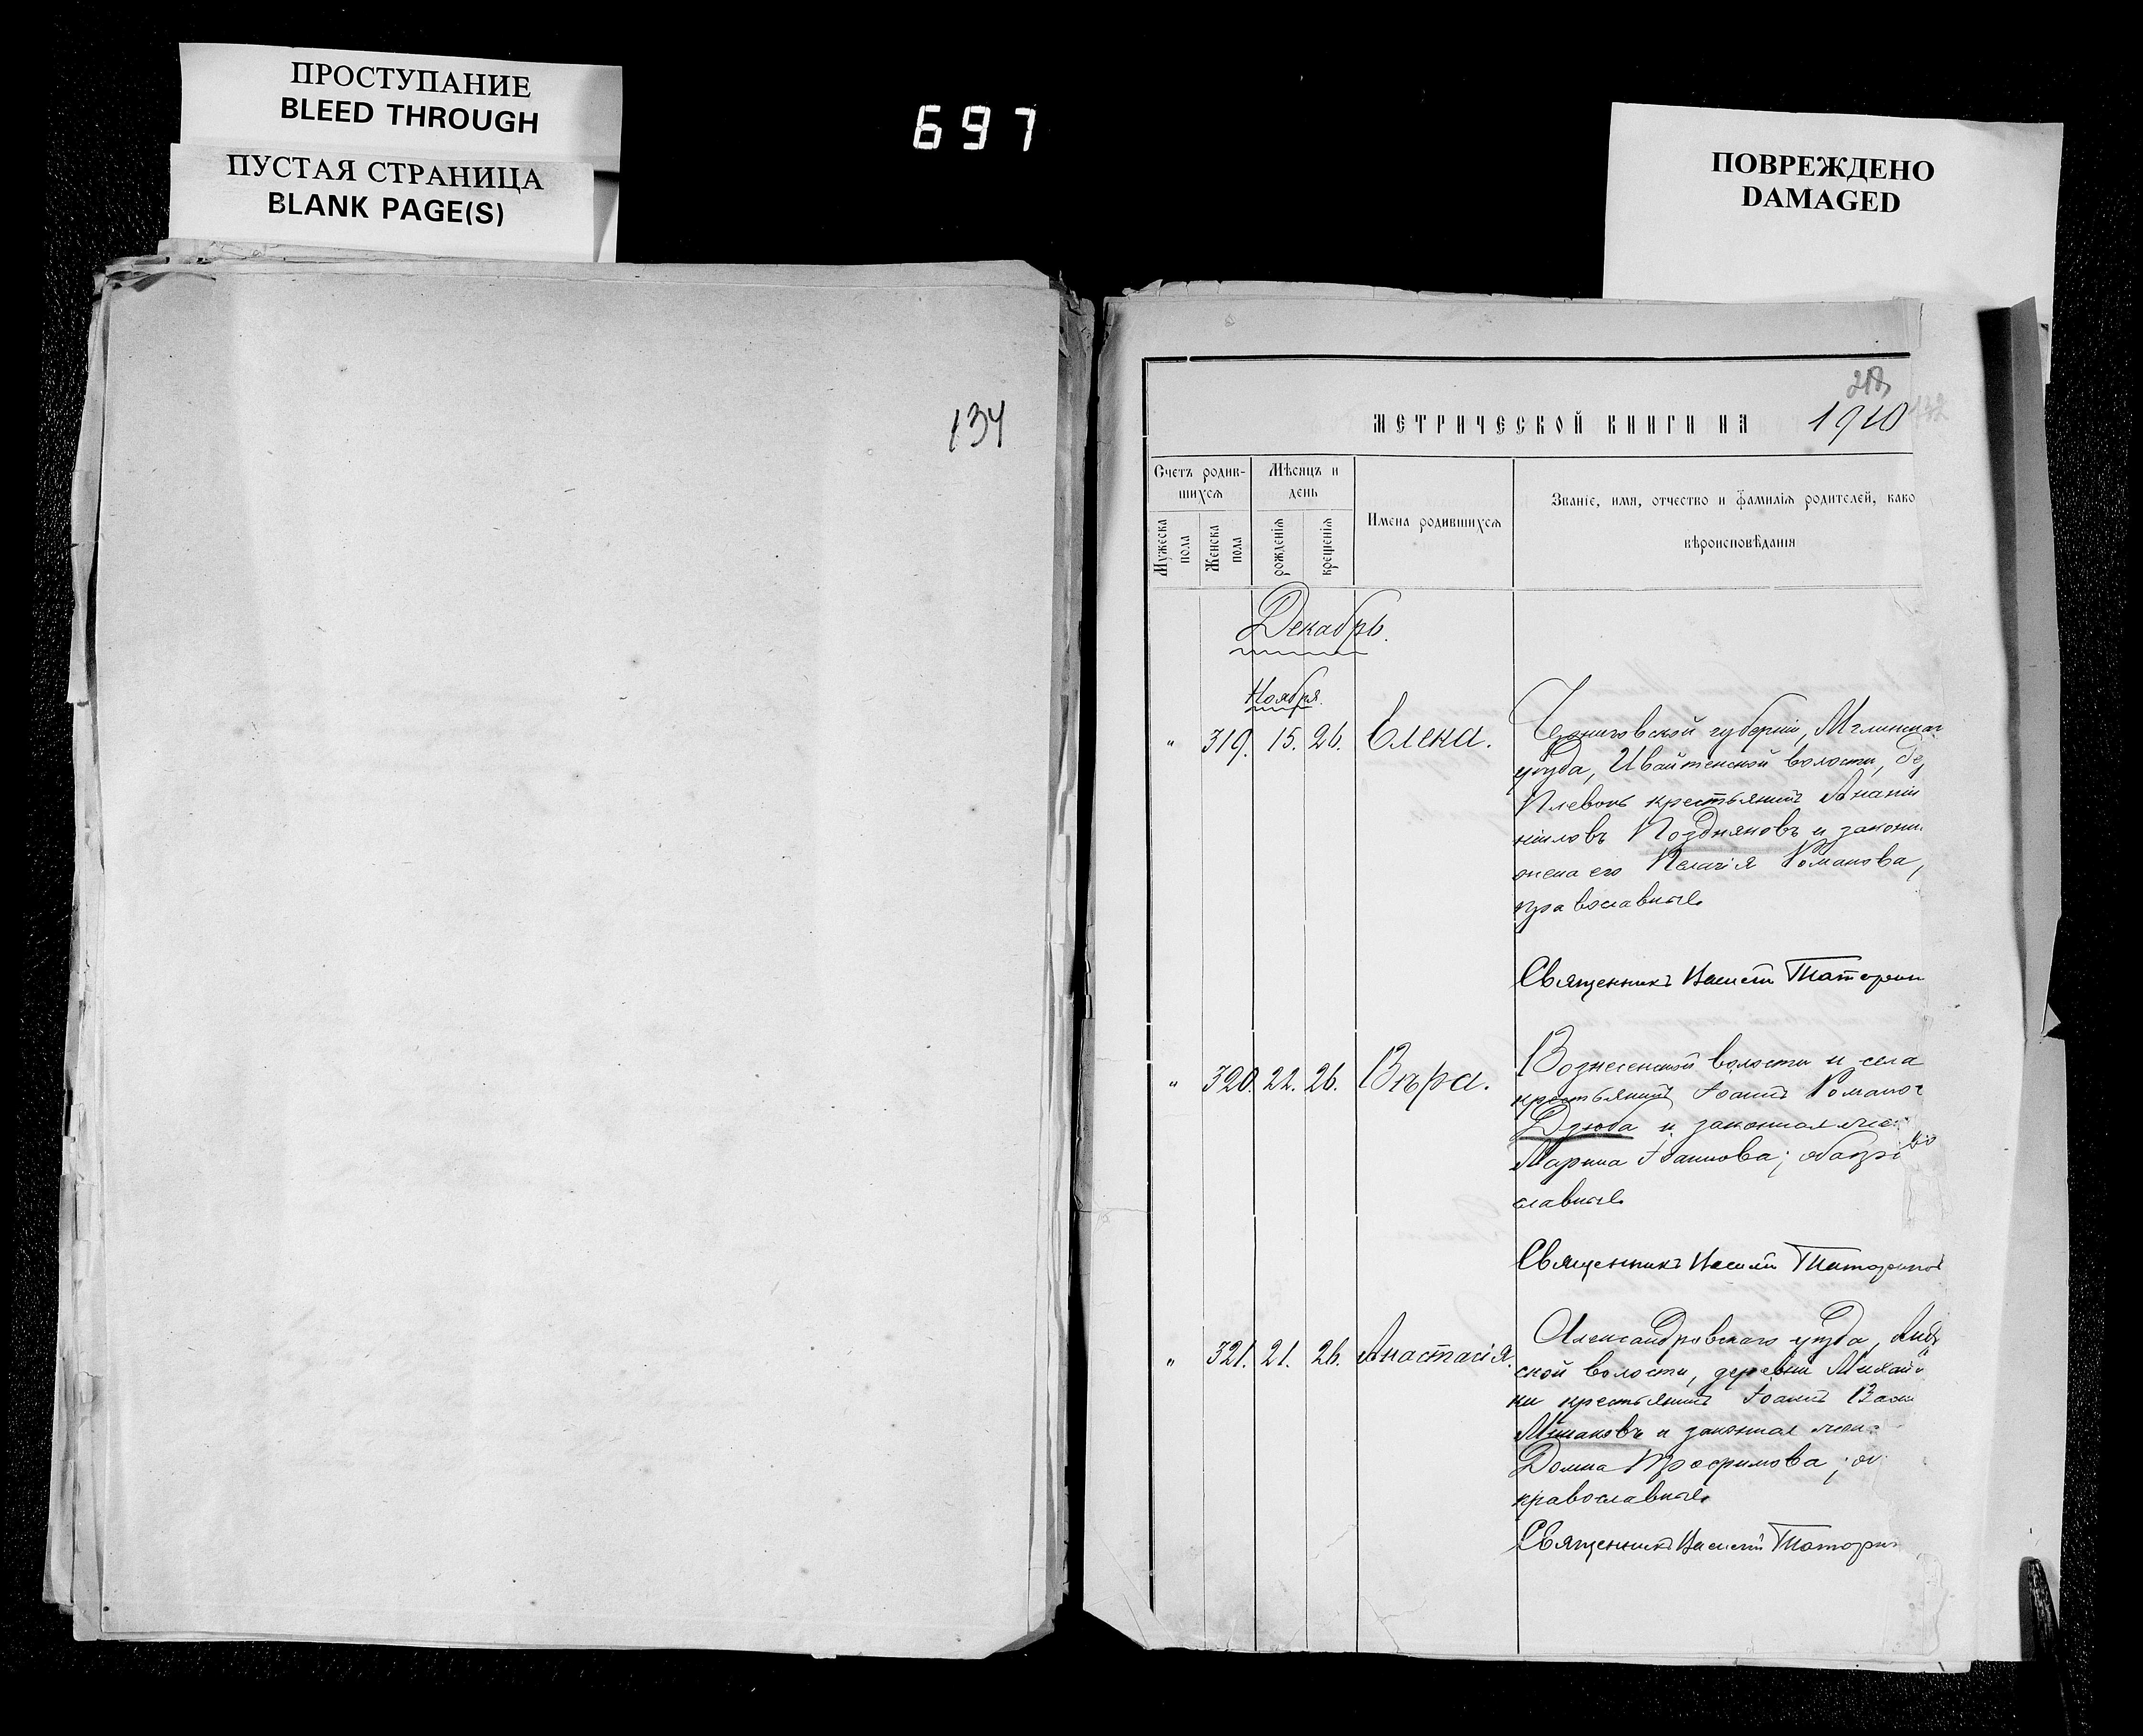 ПРОСТУПАНИЕ
BLEED THROUGH
ПУСТАЯ СТРАНИЦА
BLANK PAGE(S)
697
ПОВРЕЖДЕНО
DAMAGED
134
МЕТРИЧЕСКОЙ КНИГИ НА 1910
Счетъ родив-
шихся
Мужеска
пола
Женска
пола
Мѣсяцъ и
день
рожденія
крещенія
Имена родившихся
Званіе, имя, отчество и фамилія родителей, како
вѣроисповѣданія
Декабрь.
Ноября.
" 319. 15. 26. Елена.
Черниговской губерніи, Мглинскаг
уѣзда, Ивайтенской волости,
крестьянинъ Ананій
Поздняковъ и законн.
жена его Пелагія Романова,
православные
Священникъ Василій
" 320. 22. 26. Вѣра.
Вознесенской волости и села
крестьянинъ Іоаннъ Романов
Дзюба и законная же
Марина Іоаннова; оба пра во
славные
Священникъ Василій
" 321. 21. 26. Анастасія.
Александровскаго уѣзда, Анд
ской волости, деревни Михай
ки крестьянинъ Іоаннъ Васи
и законная жен
Домна Трофимова;
православные
Священникъ Василій